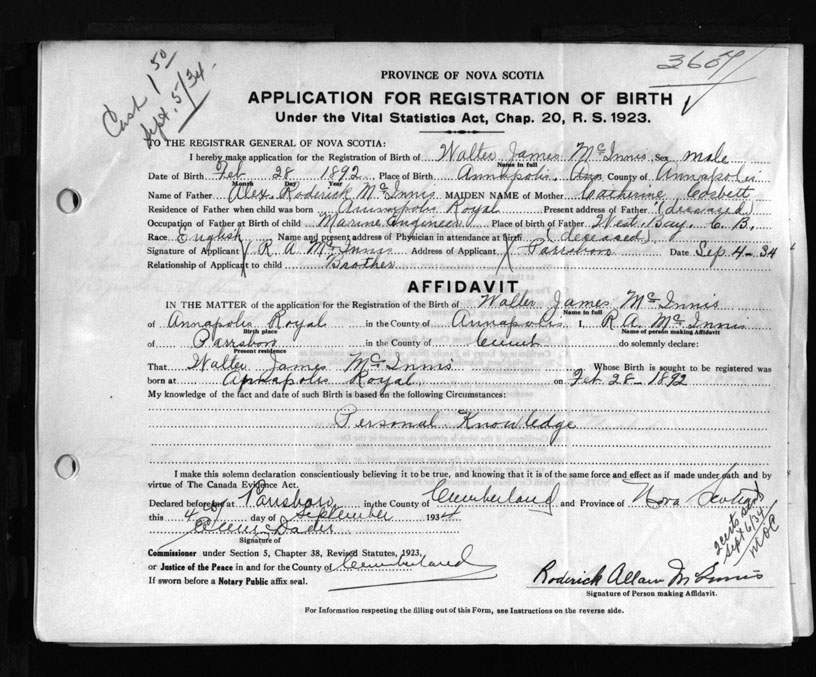 Cash 1 50
Sept. 5/34
3667
PROVINCE OF NOVA SCOTIA
APPLICATION FOR REGISTRATION OF BIRTH
Under the Vital Statistics Act, Chap. 20, R. S. 1923.
TO THE REGISTRAR GENERAL OF NOVA SCOTIA:
I hereby make application for the Registration of Birth of Walter James McInnis Sex male
Name in full
Date of Birth Feb 28 1892 Place of Birth Annapolis County of Annapolis
Month Day Year
Name of Father Alex. Roderick McInnis MAIDEN NAME of Mother Catherine Corbett
Residence of Father when child was born Annapolis Royal Present address of Father (deceased)
Occupation of Father at Birth of child Marine Engineer Place of birth of Father West Bay. C. B.
Race English Name and present address of Physician in attendance at birth (deceased)
Signature of Applicant R A McInnis Address of Applicant Parrsboro Date Sep 4-34
Relationship of Applicant to child Brother
AFFIDAVIT
IN THE MATTER of the application for the Registration of the Birth of Walter James McInnis
Name in full
of Annapolis Royal in the County of Annapolis I, R.A. McInnis
Birth place Name of person making Affidavit
of Parrsboro in the County of Cumb do solemnly declare:
Present residence
That Walter James McInnis Whose Birth is sought to be registered was
born at Annapolis Royal on Feb 28-1892
My knowledge of the fact and date of such Birth is based on the following Circumstances:
Personal Knowledge
I make this solemn declaration conscientiously believing it to be true, and knowing that it is of the same force and effect as if made under oath and by
virtue of The Canada Evidence Act.
Declared before me at Parrsboro in the County of Cumberland and Province of Nova Scotia
this 4th day of September 1934
Signature of
Commissioner under Section 5, Chapter 38, Revised Statutes, 1923.
or Justice of the Peace in and for the County of Cumberland
If sworn before a Notary Public affix seal.
2 certs sent
Sept 6/34
Roderick Allan McInnis
Signature of Person making Affidavit.
For Information respecting the filling out of this Form, see Instructions on the reverse side.